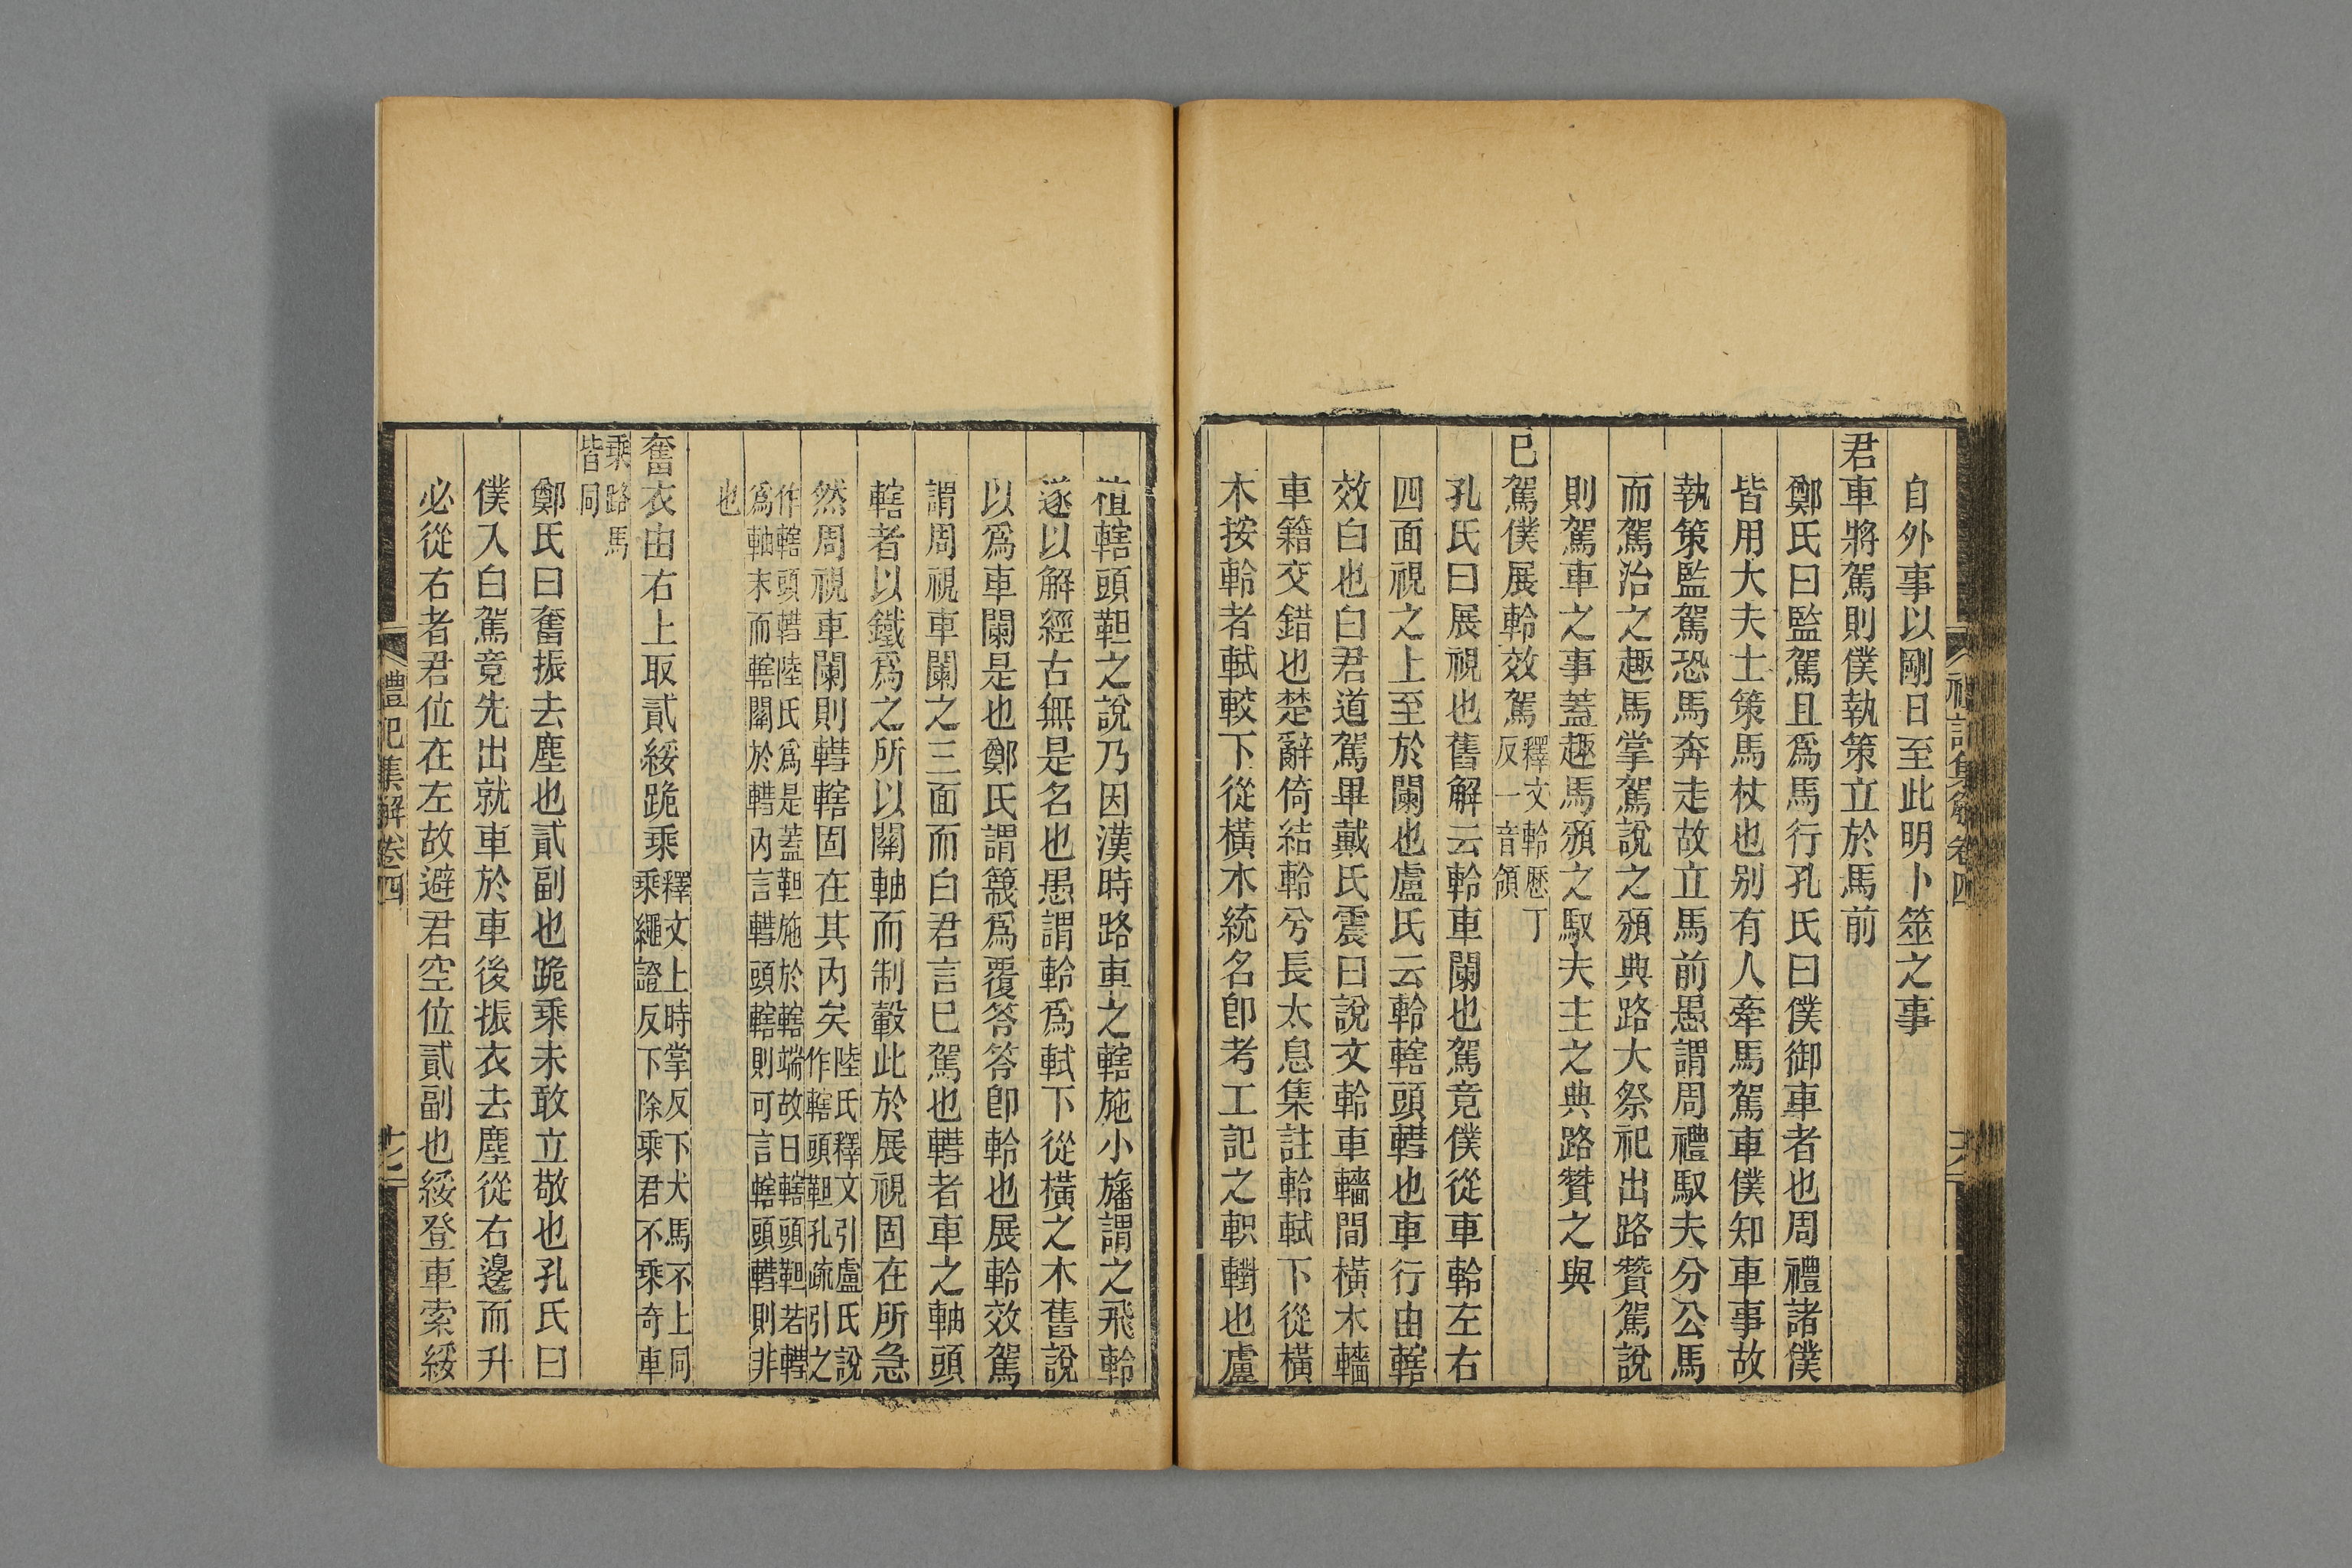 自外事以剛日至此明卜筮之事
君車將駕則僕執策立於馬前
鄭氏曰監駕且爲馬行孔氏曰僕御車者也周禮諸僕
皆用大夫士策馬杖也別有人牽馬駕車僕知車事故
執策監駕恐馬奔走故立馬前愚謂周禮馭夫分公馬
而駕治之趣馬掌駕說之頒典路大祭祀出路贊駕說
則駕車之事蓋趣馬頒之馭夫主之典路贊之與
已駕僕展軨效駕釋文軨歷丁反一音領
孔氏曰展視也舊解云軨車闌也駕竟僕從車軨左右
四面視之上至於闌也盧氏云軨轄頭轊也車行由轄
效白也白君道駕畢戴氏震曰說文軨車轖間橫木轖
車籍交錯也楚辭倚結軨兮長太息集註軨軾下從橫
木按軨者軾較下從橫木統名卽考工記之軹轛也盧
禮記集解卷四
植轄頭靼之說乃因漢時路車之轄施小旛謂之飛軨
遂以解經古無是名也愚謂軨爲軾下從橫之木舊說
以爲車闌是也鄭氏謂簚爲覆笭笭卽軨也展軨效駕
謂周視車闌之三面而白君言已駕也轊者車之軸頭
轄者以鐵爲之所以關軸而制轂此於展視固在所急
然周視車闌則轊轄固在其內矣陸氏釋文引盧氏說作轄頭靼孔疏引之
作轄頭轊陸氏爲是蓋靼施於轄端故曰轄頭靼若轊
爲軸末而轄關於轊內言轊頭轄則可言轄頭轊則非
也
奮衣由右上取貳綏跪乘釋文上時掌反下犬馬不上同乘繩證反下除乘君不乘奇車
乘路馬
皆同
鄭氏曰奮振去塵也貳副也跪乘未敢立敬也孔氏曰
僕入白駕竟先出就車於車後振衣去塵從右邊而升
必從右者君位在左故避君空位貳副也綏登車索綏
禮記集解卷四